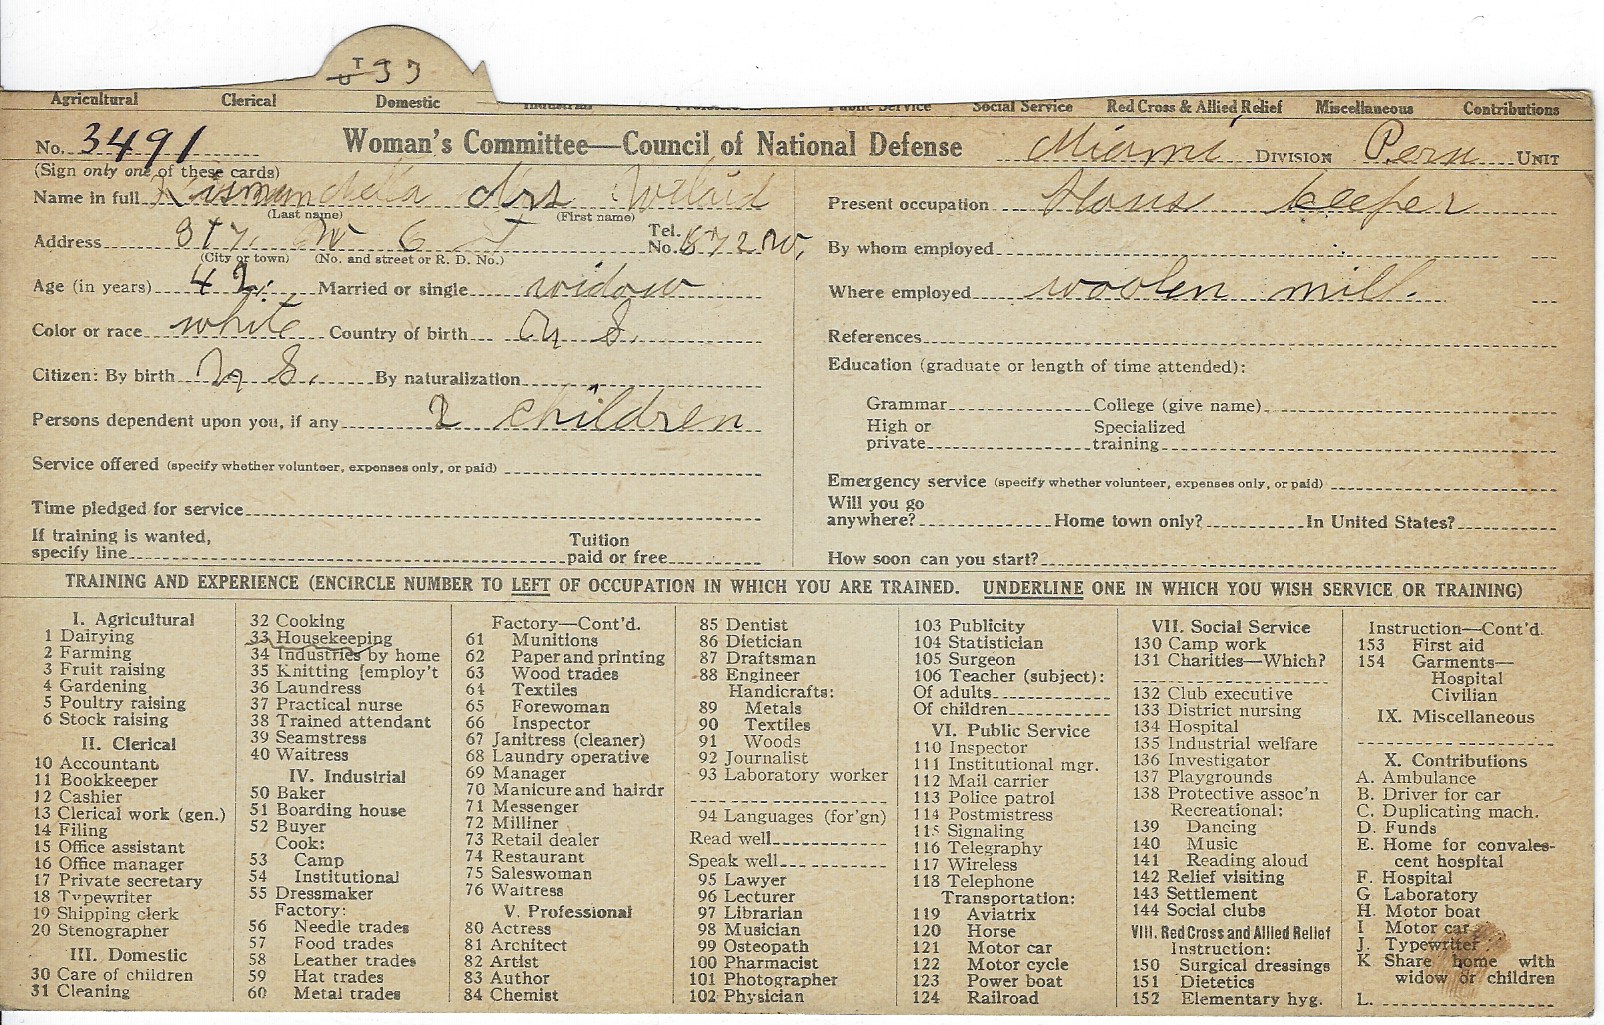 33
Agricultural Clerical Domestic Industrial Professional Public Service Social Service Red Cross & Allied Relief Miscellaneous Contributions
No. 3491 Woman's Committee—Council of National Defense Miami DIVISION Peru UNIT
(Sign only one of these cards)
Name in full Mrs
(Last name) (First name)
Address W 6 Tel. No. 872 W.
(City or town) (No. and street or R. D. No.)
Age (in years) 42. Married or single widow
Color or race white Country of birth U S.
Citizen: By birth U S. By naturalization
Persons dependent upon you, if any 2 children
Service offered (specify whether volunteer, expenses only, or paid)
Time pledged for service
If training is wanted,
specify line
Tuition
paid or free
Present occupation Hous keeper
By whom employed
Where employed woolen mill.
References
Education (graduate or length of time attended):
Grammar College (give name)
High or private Specialized training
Emergency service (specify whether volunteer, expenses only, or paid)
Will you go
anywhere? Home town only? In United States?
How soon can you start?
TRAINING AND EXPERIENCE (ENCIRCLE NUMBER TO LEFT OF OCCUPATION IN WHICH YOU ARE TRAINED. UNDERLINE ONE IN WHICH YOU WISH SERVICE OR TRAINING)
I. Agricultural
1 Dairying
2 Farming
3 Fruit raising
4 Gardening
5 Poultry raising
6 Stock raising
II. Clerical
10 Accountant
11 Bookkeeper
12 Cashier
13 Clerical work (gen.)
14 Filing
15 Office assistant
16 Office manager
17 Private secretary
18 Typewriter
19 Shipping clerk
20 Stenographer
III. Domestic
30 Care of children
31 Cleaning
32 Cooking
33 Housekeeping
34 Industries by home
35 Knitting [employ't
36 Laundress
37 Practical nurse
38 Trained attendant
39 Seamstress
40 Waitress
IV. Industrial
50 Baker
51 Boarding house
52 Buyer
Cook:
53 Camp
54 Institutional
55 Dressmaker
Factory:
56 Needle trades
57 Food trades
58 Leather trades
59 Hat trades
60 Metal trades
Factory—Cont'd.
61 Munitions
62 Paper and printing
63 Wood trades
64 Textiles
65 Forewoman
66 Inspector
67 Janitress (cleaner)
68 Laundry operative
69 Manager
70 Manicure and hairdr
71 Messenger
72 Milliner
73 Retail dealer
74 Restaurant
75 Saleswoman
76 Waitress
V. Professional
80 Actress
81 Architect
82 Artist
83 Author
84 Chemist
85 Dentist
86 Dietician
87 Draftsman
88 Engineer
Handicrafts:
89 Metals
90 Textiles
91 Woods
92 Journalist
93 Laboratory worker
94 Languages (for'gn)
Read well
Speak well
95 Lawyer
96 Lecturer
97 Librarian
98 Musician
99 Osteopath
100 Pharmacist
101 Photographer
102 Physician
103 Publicity
104 Statistician
105 Surgeon
106 Teacher (subject):
Of adults
Of children
VI. Public Service
110 Inspector
111 Institutional mgr.
112 Mail carrier
113 Police patrol
114 Postmistress
115 Signaling
116 Telegraphy
117 Wireless
118 Telephone
Transportation:
119 Aviatrix
120 Horse
121 Motor car
122 Motor cycle
123 Power boat
124 Railroad
VII. Social Service
130 Camp work
131 Charities—Which?
132 Club executive
133 District nursing
134 Hospital
135 Industrial welfare
136 Investigator
137 Playgrounds
138 Protective assoc'n
Recreational:
139 Dancing
140 Music
141 Reading aloud
142 Relief visiting
143 Settlement
144 Social clubs
VIII. Red Cross and Allied Relief
Instruction:
150 Surgical dressings
151 Dietetics
152 Elementary hyg.
Instruction—Cont'd.
153 First aid
154 Garments—
Hospital
Civilian
IX. Miscellaneous
X. Contributions
A. Ambulance
B. Driver for car
C. Duplicating mach.
D. Funds
E. Home for convales-
cent hospital
F. Hospital
G Laboratory
H. Motor boat
I Motor car
J. Typewritter
K Share home with
widow or children
L.